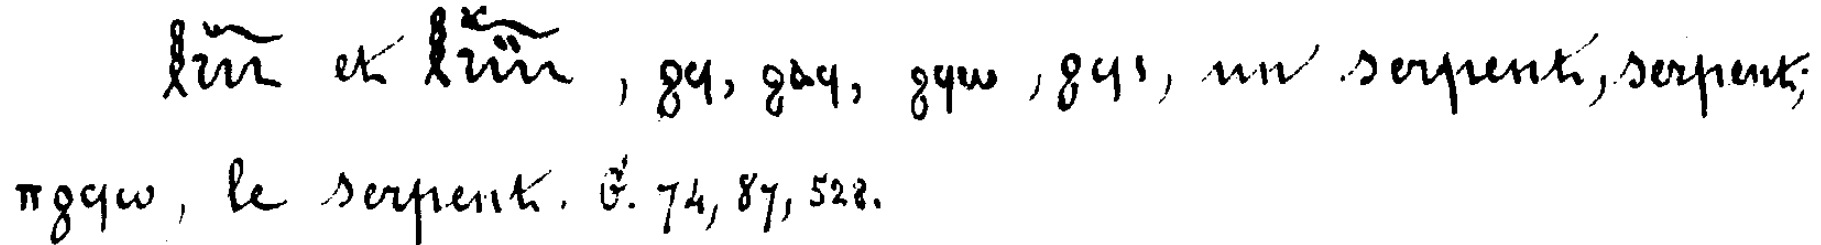 et , ϩϥ, ϩⲁϥ, ϩϥⲱ, ϩϥⲓ, un serpent, serpent;
ⲡϩϥⲱ, le serpent. G. 74, 87, 528.